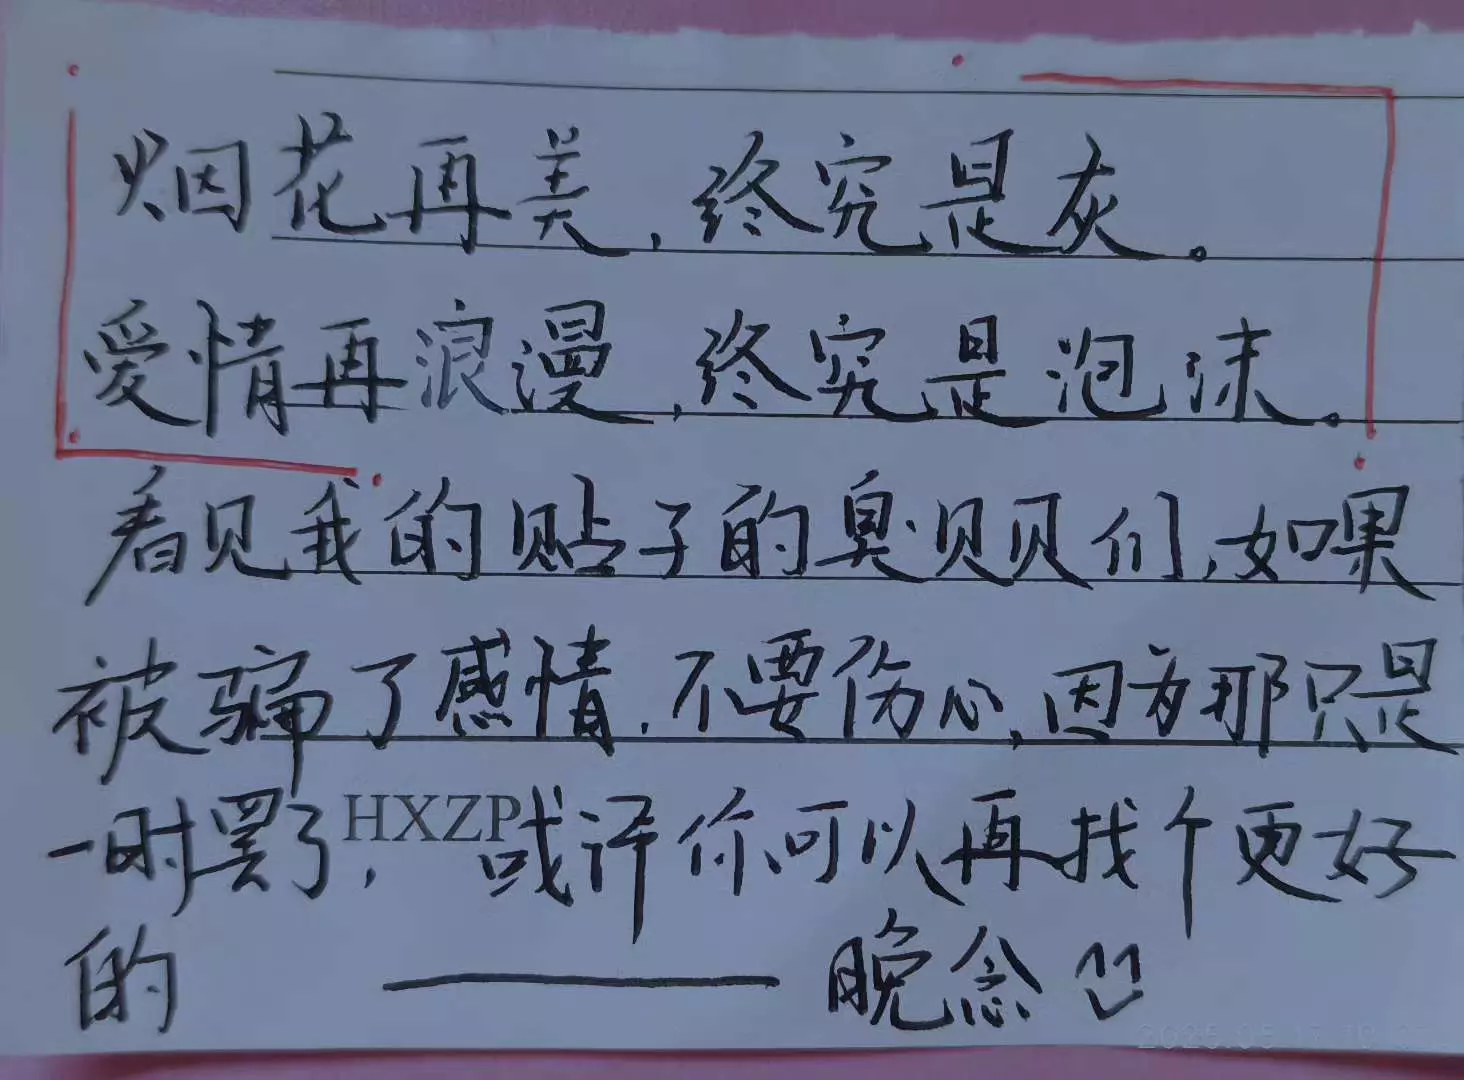 烟花再美，终究是灰。
爱情再浪漫，终究是泡沫。
看见我的贴子的臭呗贝们，如果
被骗了感情，不要伤心，因为那只是
一时罢了，HXZP或许你可以再找个更好
的 —— 晚念